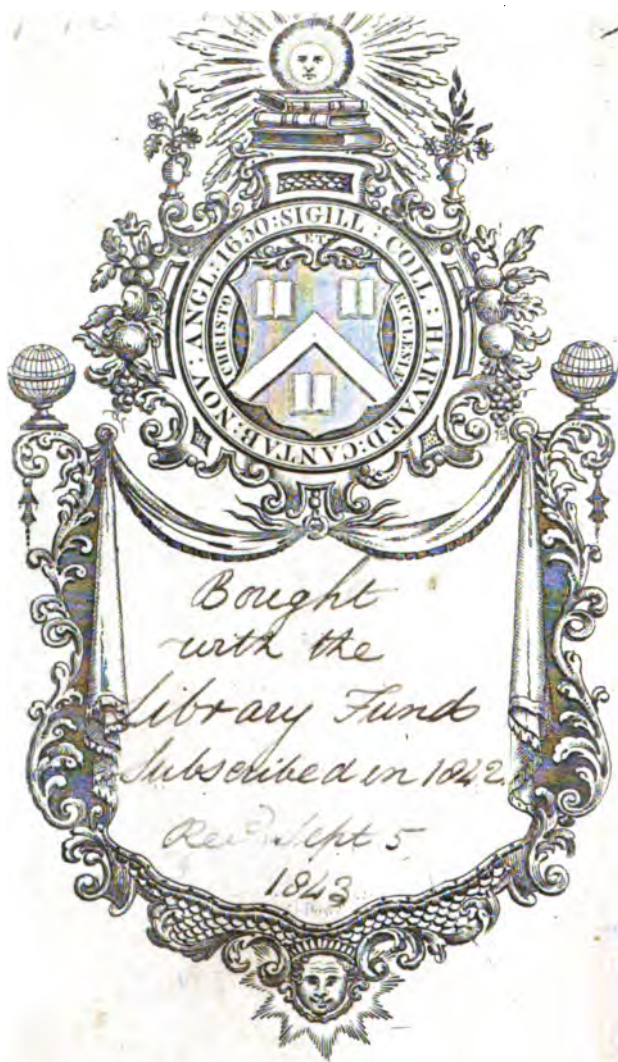 SIGILL : COLL : HARVARD : CANTAB : NOV : ANGL : 1650 :
ET
CHRISTO
ECCLESIÆ
Bought
with the
Library Fund
Subscribed in 1842.
Recd Sept 5
1843